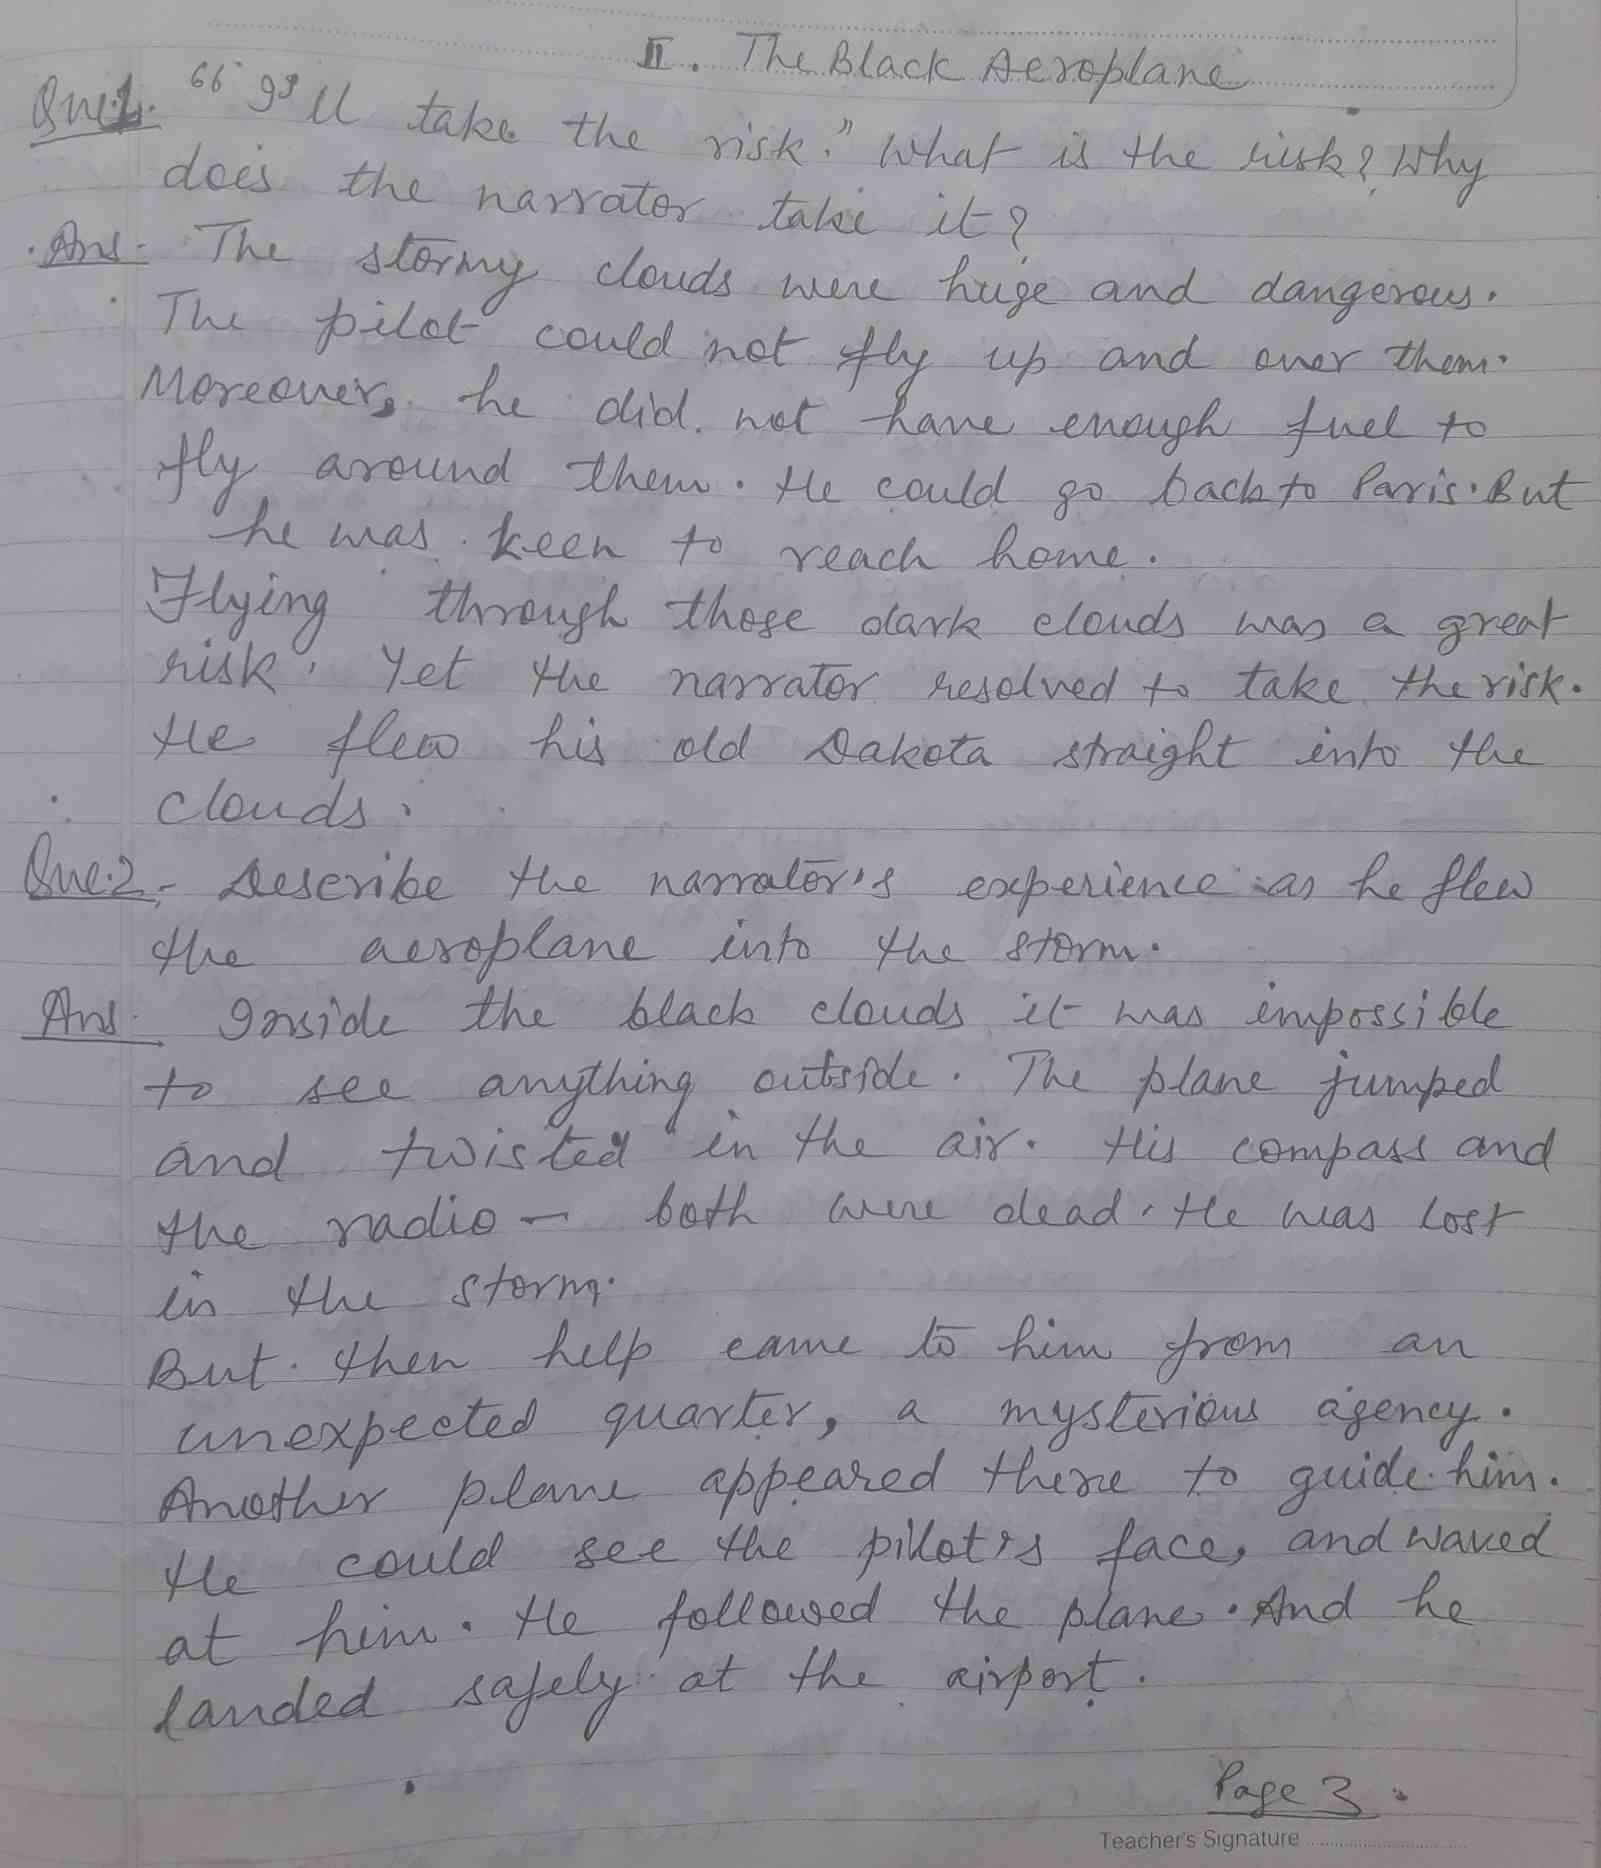 II. The Black Aeroplane
Que:1. "I'll take the risk." What is the risk? Why
does the narrator take it?
Ans- The stormy clouds were huge and dangerous.
The pilot could not fly up and over them.
Moreover, he did not have enough fuel to
fly around them. He could go back to Paris. But
he was keen to reach home.
Flying through those dark clouds was a great
risk. Yet the narrator resolved to take the risk.
He flew his old Dakota straight into the
clouds.
Que:2.- Describe the narrator's experience as he flew
the aeroplane into the storm.
Ans- Inside the black clouds it was impossible
to see anything outside. The plane jumped
and twisted in the air. His compass and
the radio - both were dead. He was lost
in the storm.
But then help came to him from an
unexpected quarter, a mysterious agency.
Another plane appeared there to guide him.
He could see the pilot's face, and waved
at him. He followed the plane. And he
landed safely at the airport.
Page 3
Teacher's Signature